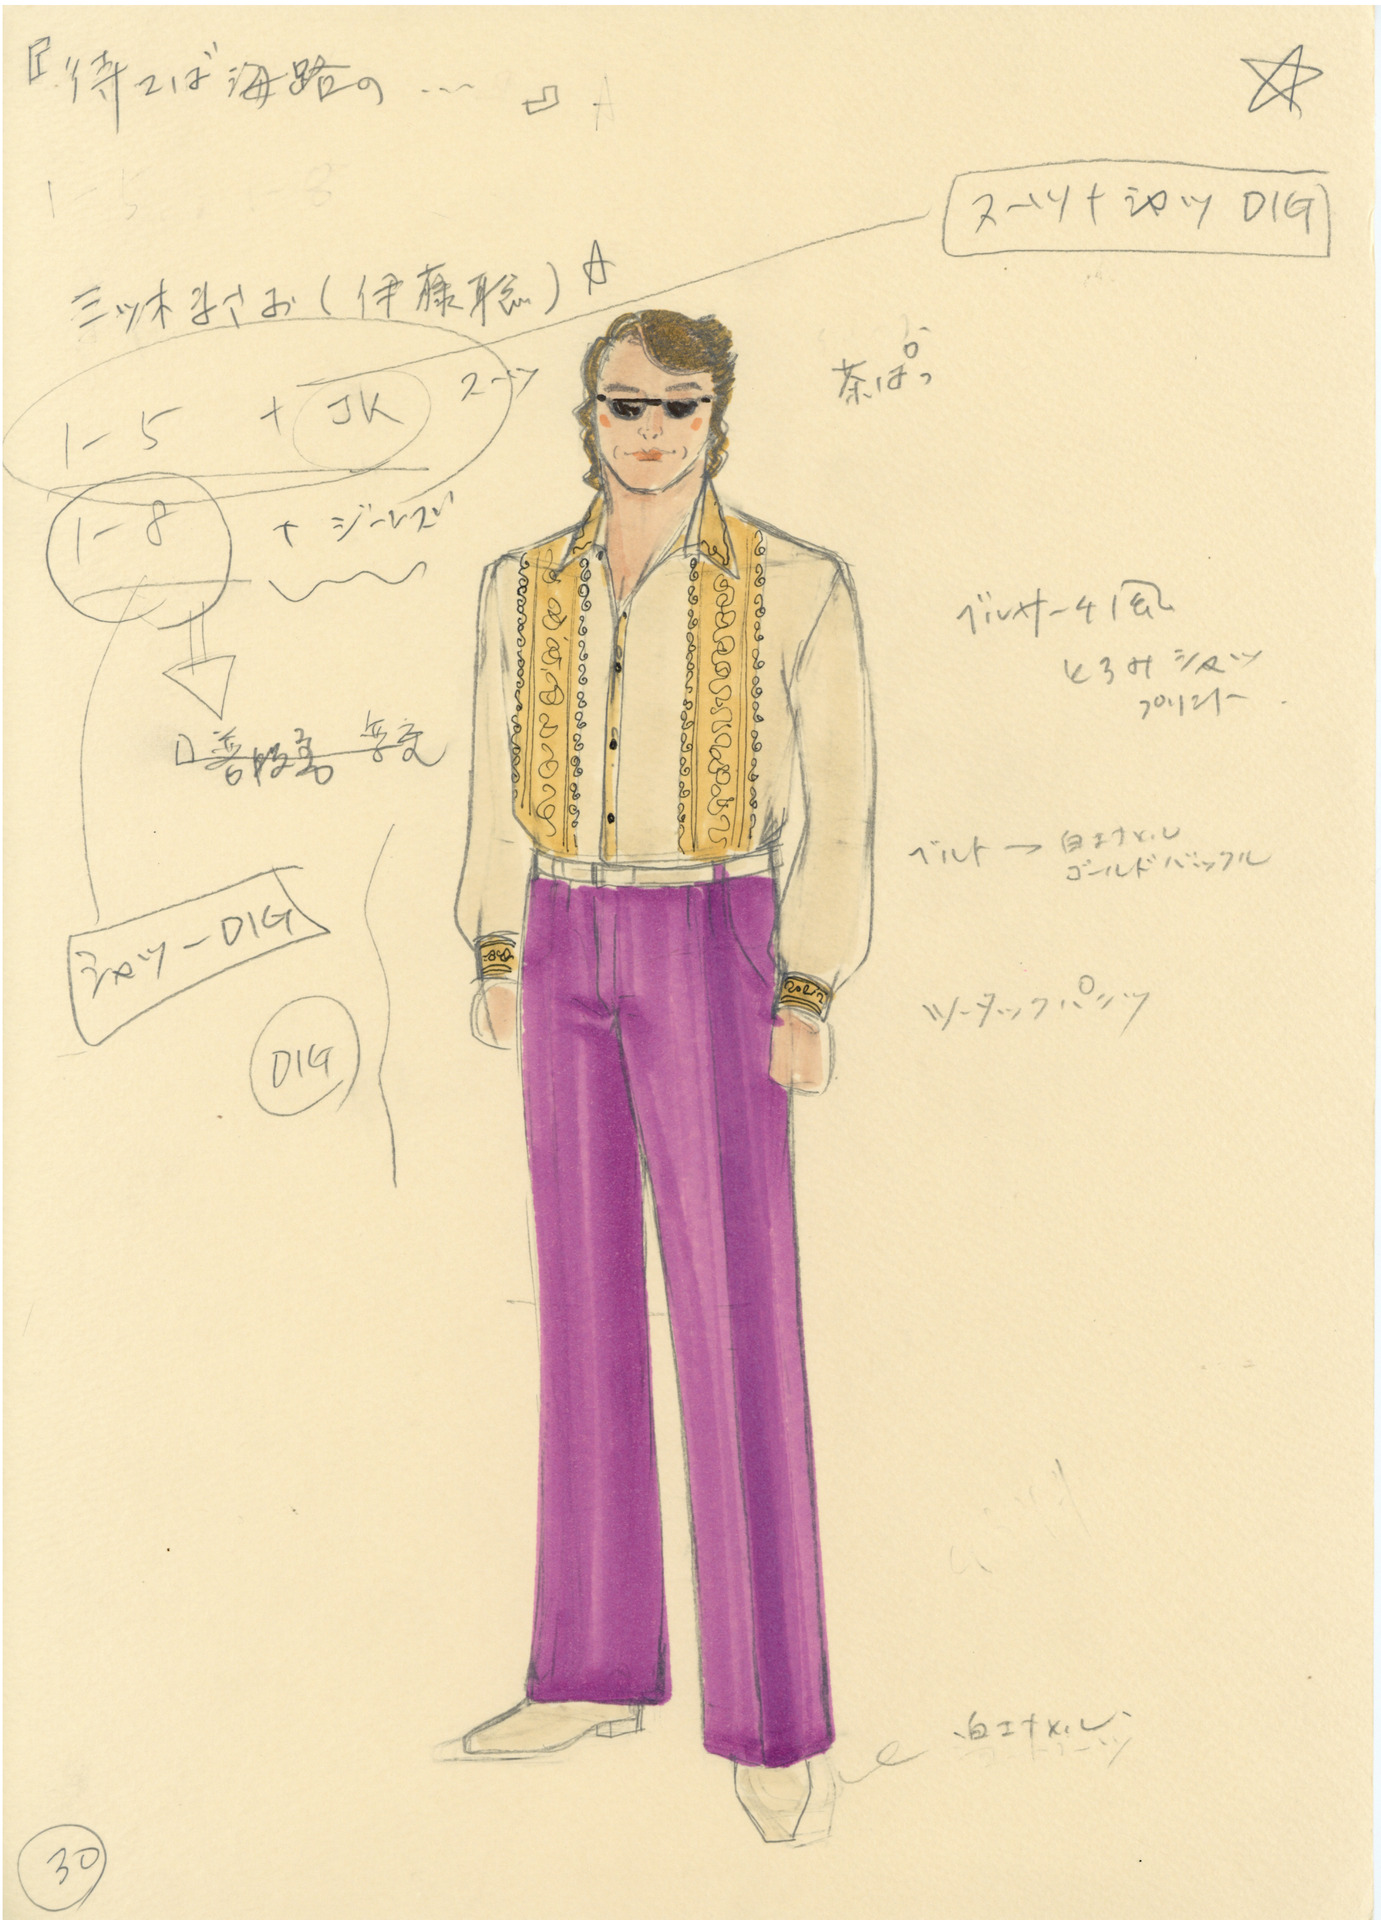 『待てば海路の…』
スーツ+シャツ DIG
三ツ木まさお(伊藤聡)
1-5 +JK スーツ
1-8 + ジーンズ
茶ぱつ
ベルサーチ風
とろみシャツ
プリント
ベルト→白エナメル
ゴールドバックル
シャツ-DIG
ツータックパンツ
DIG
白エナメル
30